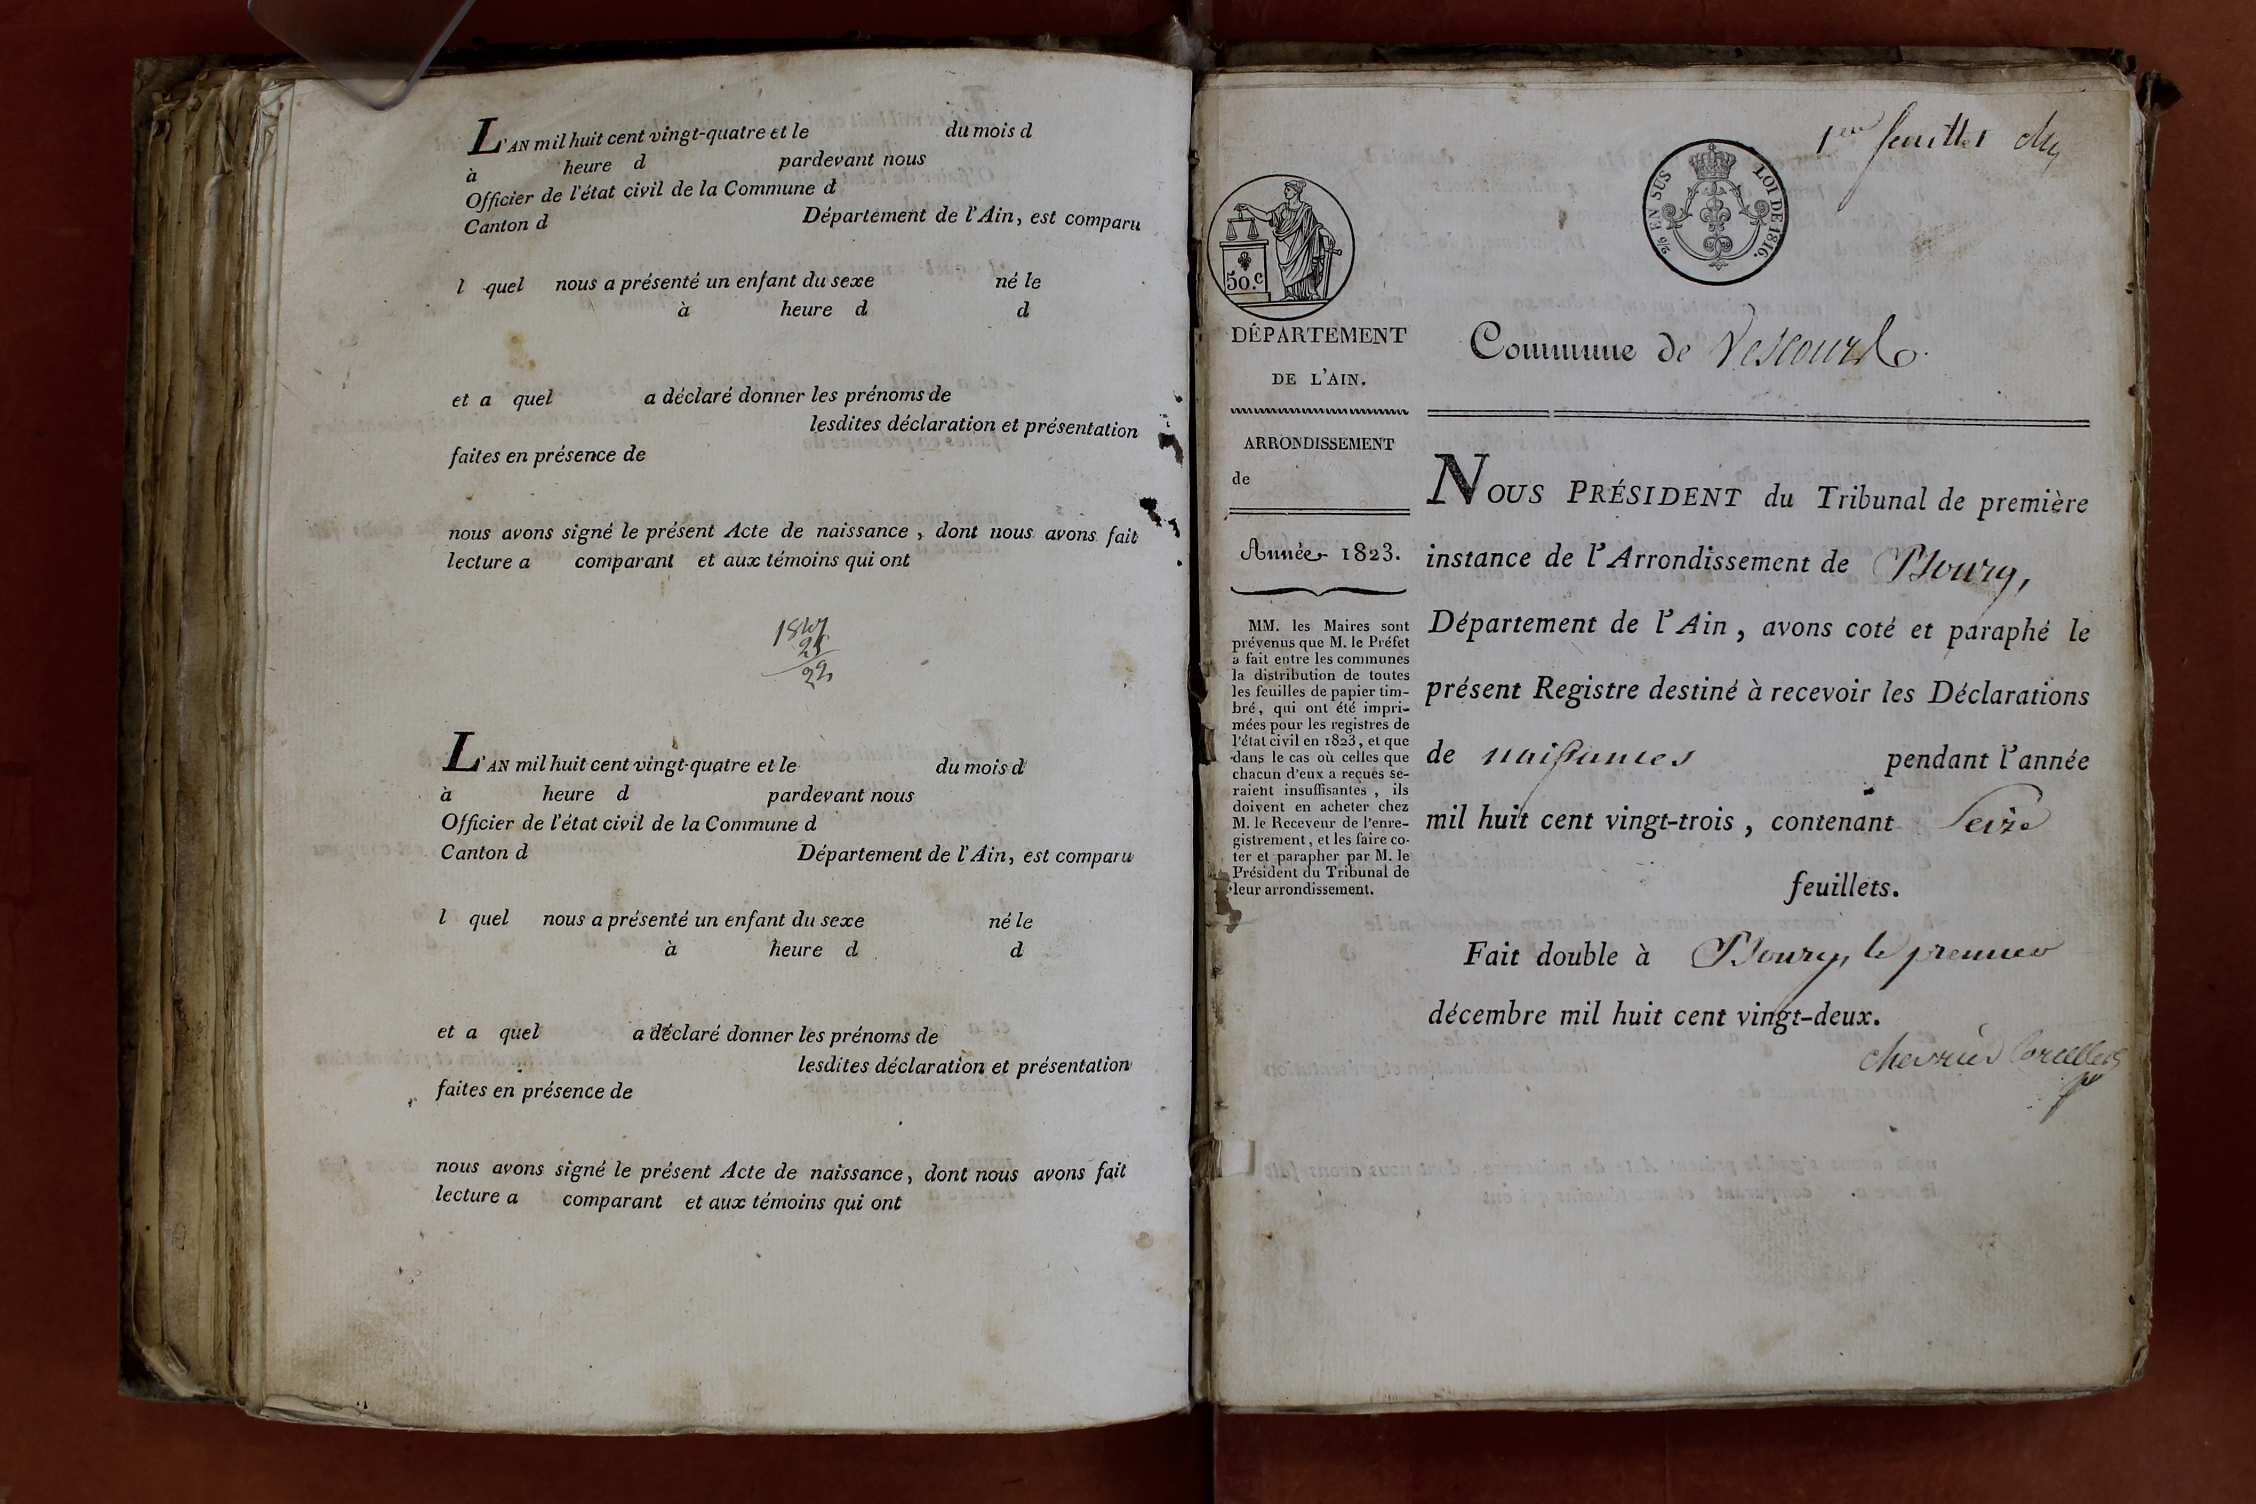 L'AN mil huit cent vingt-quatre et le du mois d
à heure d pardevant nous
Officier de l'état civil de la Commune d
Canton d Département de l'Ain, est comparu
l quel nous a présenté un enfant du sexe né le
à heure d d
et a quel a déclaré donner les prénoms de
lesdites déclaration et présentation
faites en présence de
nous avons signé le présent Acte de naissance, dont nous avons fait
lecture a comparant et aux témoins qui ont
22
L'AN mil huit cent vingt-quatre et le du mois d
à heure d pardevant nous
Officier de l'état civil de la Commune d
Canton d Département de l'Ain, est comparu
l quel nous a présenté un enfant du sexe né le
à heure d d
et a quel a déclaré donner les prénoms de
lesdites déclaration et présentation
faites en présence de
nous avons signé le présent Acte de naissance, dont nous avons fait
lecture a comparant et aux témoins qui ont
1er feuillet
EN SUS LOI DE 1816.
50.c
DÉPARTEMENT
DE L'AIN.
ARRONDISSEMENT
de
Année 1823.
MM. les Maires sont
prévenus que M. le Préfet
a fait entre les communes
la distribution de toutes
les feuilles de papier tim-
bré, qui ont été impri-
mées pour les registres de
l'état civil en 1823, et que
dans le cas où celles que
chacun d'eux a reçues se-
raient insuffisantes, ils
doivent en acheter chez
M. le Receveur de l'enre-
gistrement, et les faire co-
ter et parapher par M. le
Président du Tribunal de
leur arrondissement.
Commune de Vescours
NOUS PRÉSIDENT du Tribunal de première
instance de l'Arrondissement de Bourg,
Département de l'Ain, avons coté et paraphé le
présent Registre destiné à recevoir les Déclarations
de naissances pendant l'année
mil huit cent vingt-trois, contenant Seize
feuillets.
Fait double à Bourg, le premier
décembre mil huit cent vingt-deux.